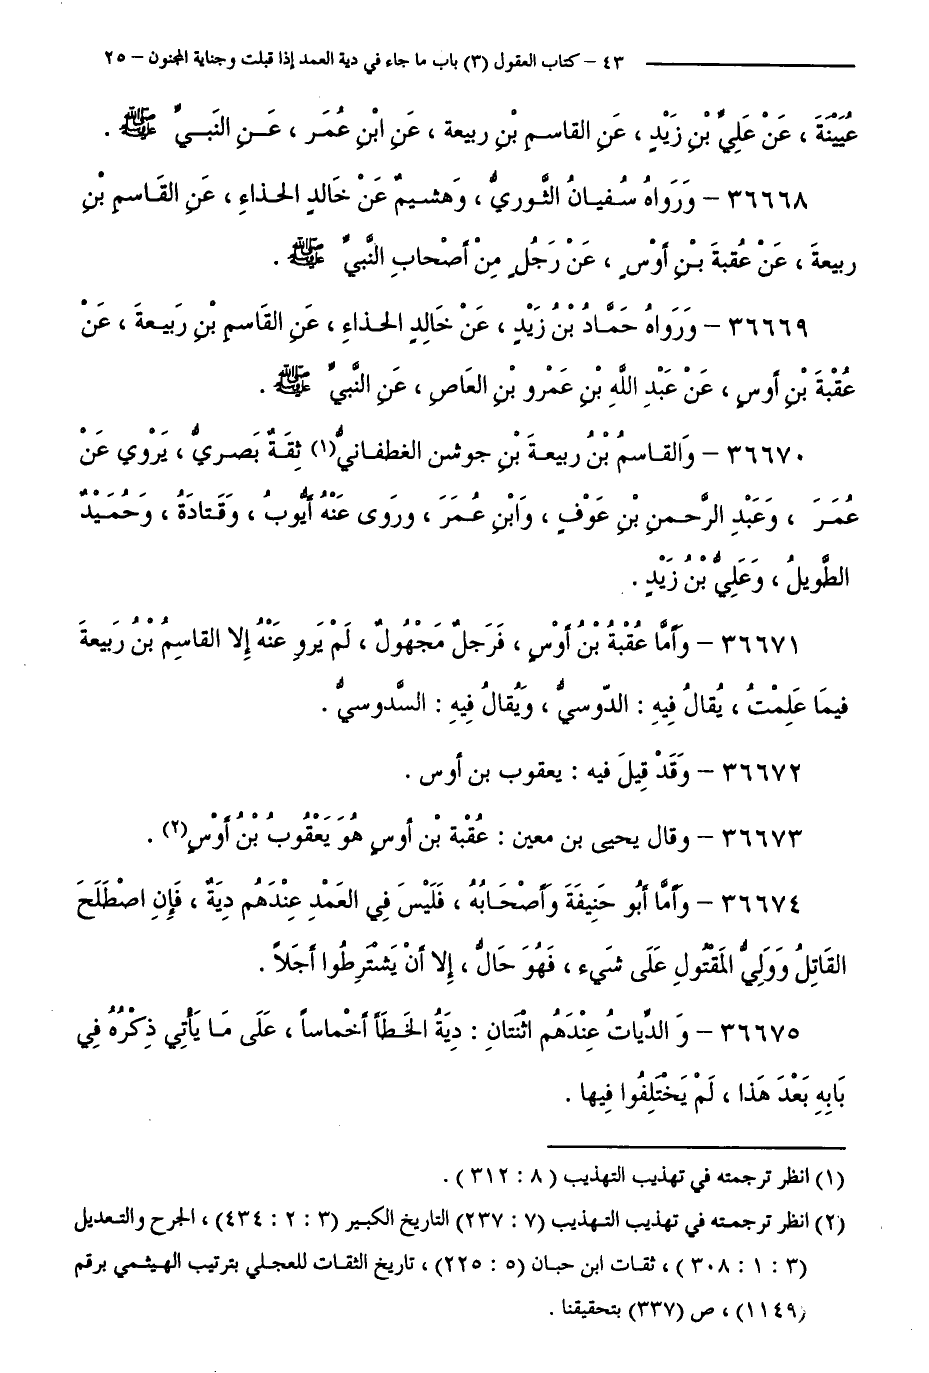 ٤٣ – كتاب العقول (٣) باب ما جاء في دية العمد إذا قبلت وجناية المجنون – ٢٥
عُيَيْنَةَ ، عَنْ عَلِيِّ بْنِ زَيْدٍ ، عَنِ القاسم بْنِ ربيعة ، عَنِ ابْنِ عُمَر ، عَنِ النَبيِّ ﷺ .
٣٦٦٦٨ – وَرَواهُ سُفيانُ الثَّوريُّ ، وَهشيمٌ عَنْ خَالدٍ الحذاءِ ، عَنِ القَاسمِ بْنِ
ربيعةَ ، عَنْ عُقبةَ بْنِ أَوْسٍ ، عَنْ رَجُلٍ مِنْ أَصْحابِ النَّبيِّ ﷺ .
٣٦٦٦٩ – وَرَواهُ حَمَّادُ بْنُ زَيْدٍ ، عَنْ خَالِدٍ الحذاءِ ، عَنِ القَاسمِ بْنِ رَبيعةَ ، عَنْ
عُقْبَةَ بْنِ أوسٍ ، عَنْ عَبْدِ اللَّهِ بْنِ عَمْرِو بْنِ العَاصِ ، عَنِ النَّبيِّ ﷺ .
٣٦٦٧٠ – وَالقاسمُ بْنُ ربيعةَ بْنِ جوشن الغطفانيُّ(١) ثِقَةٌ بَصريٌّ ، يَرْوي عَنْ
عُمَرَ ، وَعَبْدِ الرَّحمنِ بْنِ عَوْفٍ ، وَابْنِ عُمَرَ ، وروى عَنْهُ أَيُّوبُ ، وَقَتادَةُ ، وَحُمَيْدٌ
الطَّويلُ ، وَعَلِيُّ بْنُ زَيْدٍ .
٣٦٦٧١ – وَأَمَّا عُقْبَةُ بْنُ أَوْسٍ ، فَرَجلٌ مَجْهُولٌ ، لَمْ يَروِ عَنْهُ إِلا القَاسِمُ بْنُ رَبيعةَ
فِيمَا عَلِمْتُ ، يُقالُ فِيهِ : الدّوسيُّ ، وَيُقالُ فِيهِ : السَّدوسيُّ .
٣٦٦٧٢ – وَقَدْ قِيلَ فيه : يعقوب بن أوس .
٣٦٦٧٣ – وقال يحيى بن معين : عُقْبة بْن أوسٍ هُوَ يَعْقُوبُ بْنُ أَوْسٍ(٢) .
٣٦٦٧٤ – وَأَمَّا أَبُو حَنِيفَةَ وَأَصْحَابُهُ ، فَلَيْسَ فِي العَمْدِ عِنْدَهُم دِيَةٌ ، فَإِنِ اصْطَلَحَ
القَاتِلُ وَوَلِيُّ المَقْتُولِ عَلَى شَيء ، فَهُوَ حَالٌّ ، إِلا أَنْ يَشْتَرِطُوا أَجَلاً .
٣٦٦٧٥ – وَ الدِّياتُ عِنْدَهُم اثْنَتَانِ : دِيَةُ الخَطَأ أَخْماساً ، عَلَى مَا يَأْتِي ذِكْرُهُ فِي
بَابِهِ بَعْدَ هَذَا ، لَمْ يَخْتَلِفُوا فِيها .
(١) انظر ترجمته في تهذيب التهذيب (٨ : ٣١٢) .
(٢) انظر ترجمته في تهذيب التهذيب (٧ : ٢٣٧) التاريخ الكبير (٣ : ٢ : ٤٣٤) ، الجرح والتعديل
(٣ : ١ : ٣٠٨) ، ثقات ابن حبان (٥ : ٢٢٥) ، تاريخ الثقات للعجلي بترتيب الهيثمي برقم
(١١٤٩) ، ص (٣٣٧) بتحقيقنا .